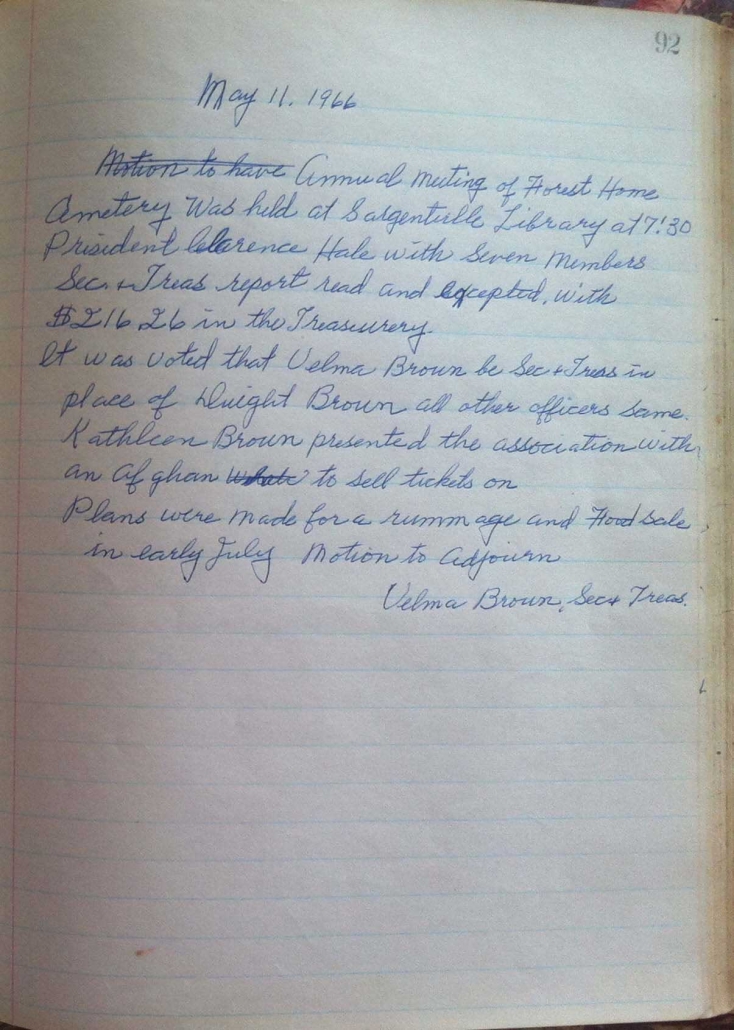 92
May 11. 1966
Motion to have Annual Meeting of Forest Home
Cemetery Was held at Sargentville Library at 7:30
President Clarence Hale with Seven Members
Sec. + Treas report read and excepted, with
$216.26 in the Treasurery.
It was voted that Velma Brown be Sec + Treas in
place of Dwight Brown all other officers same.
Kathleen Brown presented the association with
an Afghan to sell tickets on
Plans were made for a rummage and Food sale
in early July Motion to Adjourn
Velma Brown, Sec + Treas.